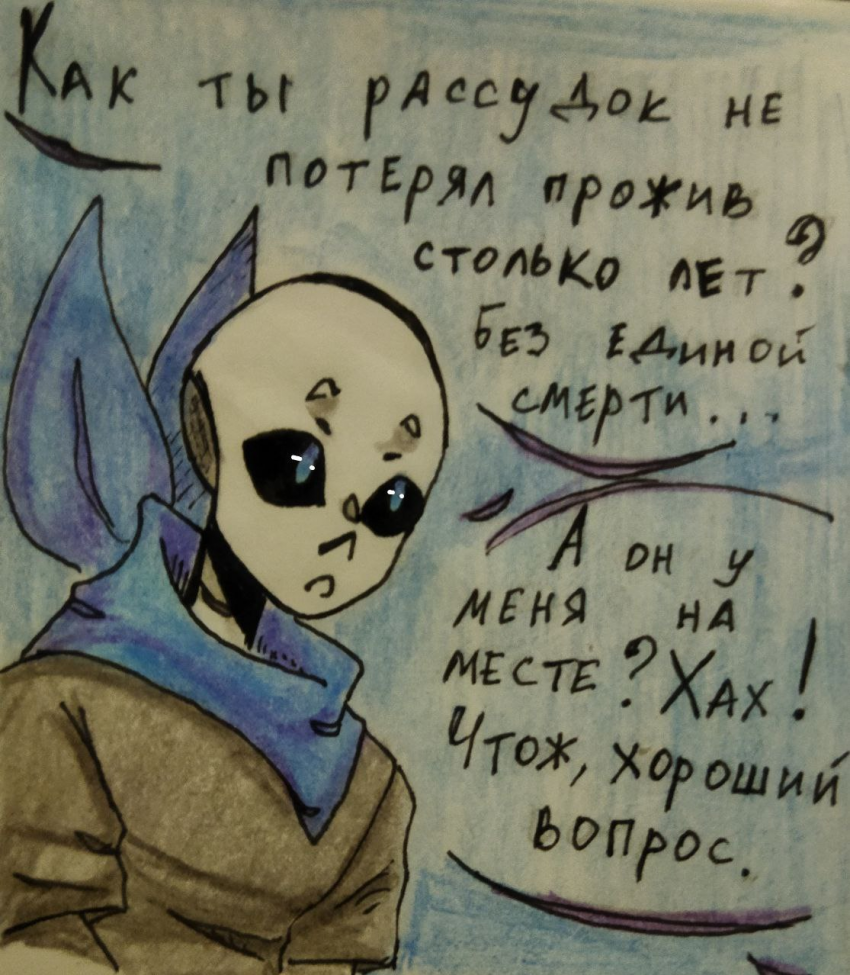 Как ты рассудок не
потерял прожив
столько лет?
Без единой
смерти...
А он у
меня на
месте? Хах!
Чтож, хороший
вопрос.